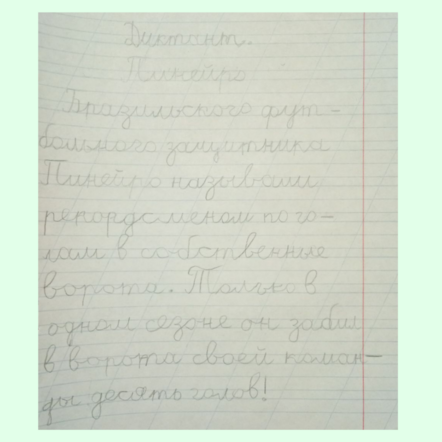 Диктант.
Пинейро
Бразильского фут-
больного защитника
Пинейро называли
рекордсменом по го-
лам в собственные
ворота. Только в
одном сезоне он забил
в ворота своей коман-
ды десять голов!